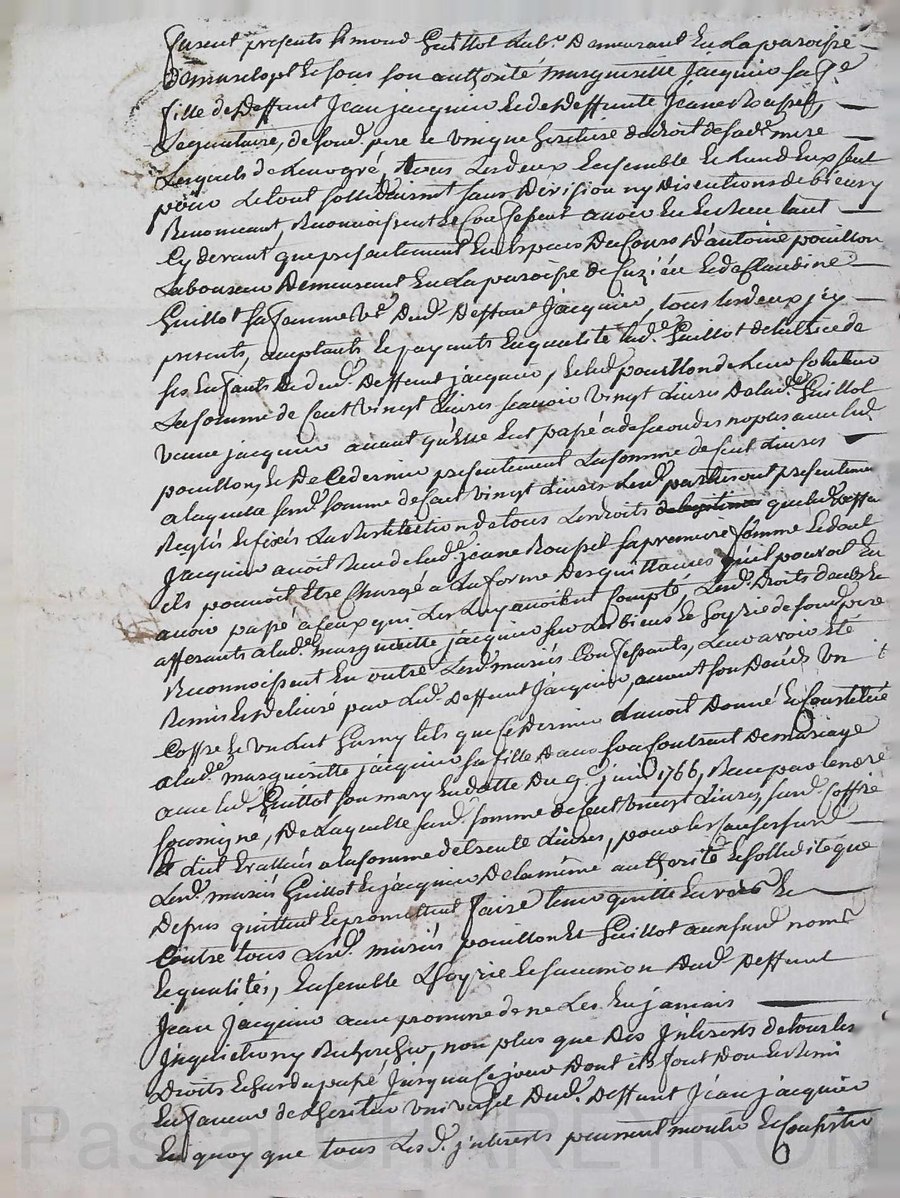 furent presents Simond Guillot Lab.r Demeurant En La paroisse
Et sous son authorité margueritte Jacquin sa f.e
fille de Deffunt Jean jacquin Et de Deffunte Jeane Roussel,
Legataire, de son d. pere Et unique heritiere de droit de sad.e mere
Lesquels de Leur gré, tous Les deux Ensemble Et L'un d'Eux seul
pour Le tout sollidairemt sans Division ny Discutions de biens y
Renonceant, Reconnoissent Et Confessent avoir Eu Et Receu tant
Cy devant que presentement En Especes Du Cours D'antoine pouillon
Laboureur Demeurant En La paroisse de Cuziéu Et de Claudine
Guillot sa femme V.e Dud. Deffunt Jacquin, tous Les deux jcy
presents, acceptants Et payants En qualité Lad.e Guillot
ses Enfants Et dud. Deffunt jacquin, Et Led. pouillon de Leur
La somme de Cent Vingt Livres scavoir Vingt Livres De Lad.e Guillot
Veuve jacquin avant qu'Elle Eut passé a de secondes nopces avec Led.
pouillon, Et De Ce dernier presentement La somme de Cent Livres
a laquelle susd. somme de Cent Vingt Livres Lesd. parties ont presentement
Reglés Et fixés La Restitution de tous Les droits que Led. Deffunt
Jacquin avoit Receu de Lad.e jeane Roussel sa premiere femme Et dont
ils pouvoit Etre Chargé a La forme Des quittances qu'il pouvoit En
avoir passé a Ceux qui Les Luy avoient Compté, Lesd. Droits
afferants a Lad.e margueritte jacquin sur Les biens Et hoyrie de son d. pere
Reconnoissent En outre Lesd. mariés Confessants, Leur avoir Eté
Remis Et delivré par Led. Deffunt Jacquin, avant son Decés Un
Coffre Et Un Lict Garny tels que Ce Dernier L'avoit Donné Et Constitué
a Lad.e margueritte jacquin sa fille Dans son Contract De mariage
avec Led. Guillot son mary En datte Du 9.e juin 1766, Receu par Le no.re
soussigné, De Laquelle susd. somme de Cent Vingt Livres, susd. Coffre
Et Lict Evalués a La somme de trente Livres, pour Les
Lesd. mariés Guillot Et jacquin De La même authorité Et sollidité que
Dessus quittent Et promettent faire tenir quitte Envers Et
Contre tous Lesd. mariés pouillon Et Guillot aux susd. noms
Et qualités, Ensemble L'hoyrie Et succession Dud. Deffunt
Jean Jacquin avec promesse de ne Les En jamais
Jnquietter ny Rechercher, non plus que Des Jnterests de tous Les
Droits Et sur du passé Jusqu'a Ce jour Dont ils font Don Et Remi
En faveur de L'heritier Universel Dud. Deffunt Jean jacquin
En quoy que tous Lesd. jnterests peuvent monter Et Consister
Pascal CHAREYRON